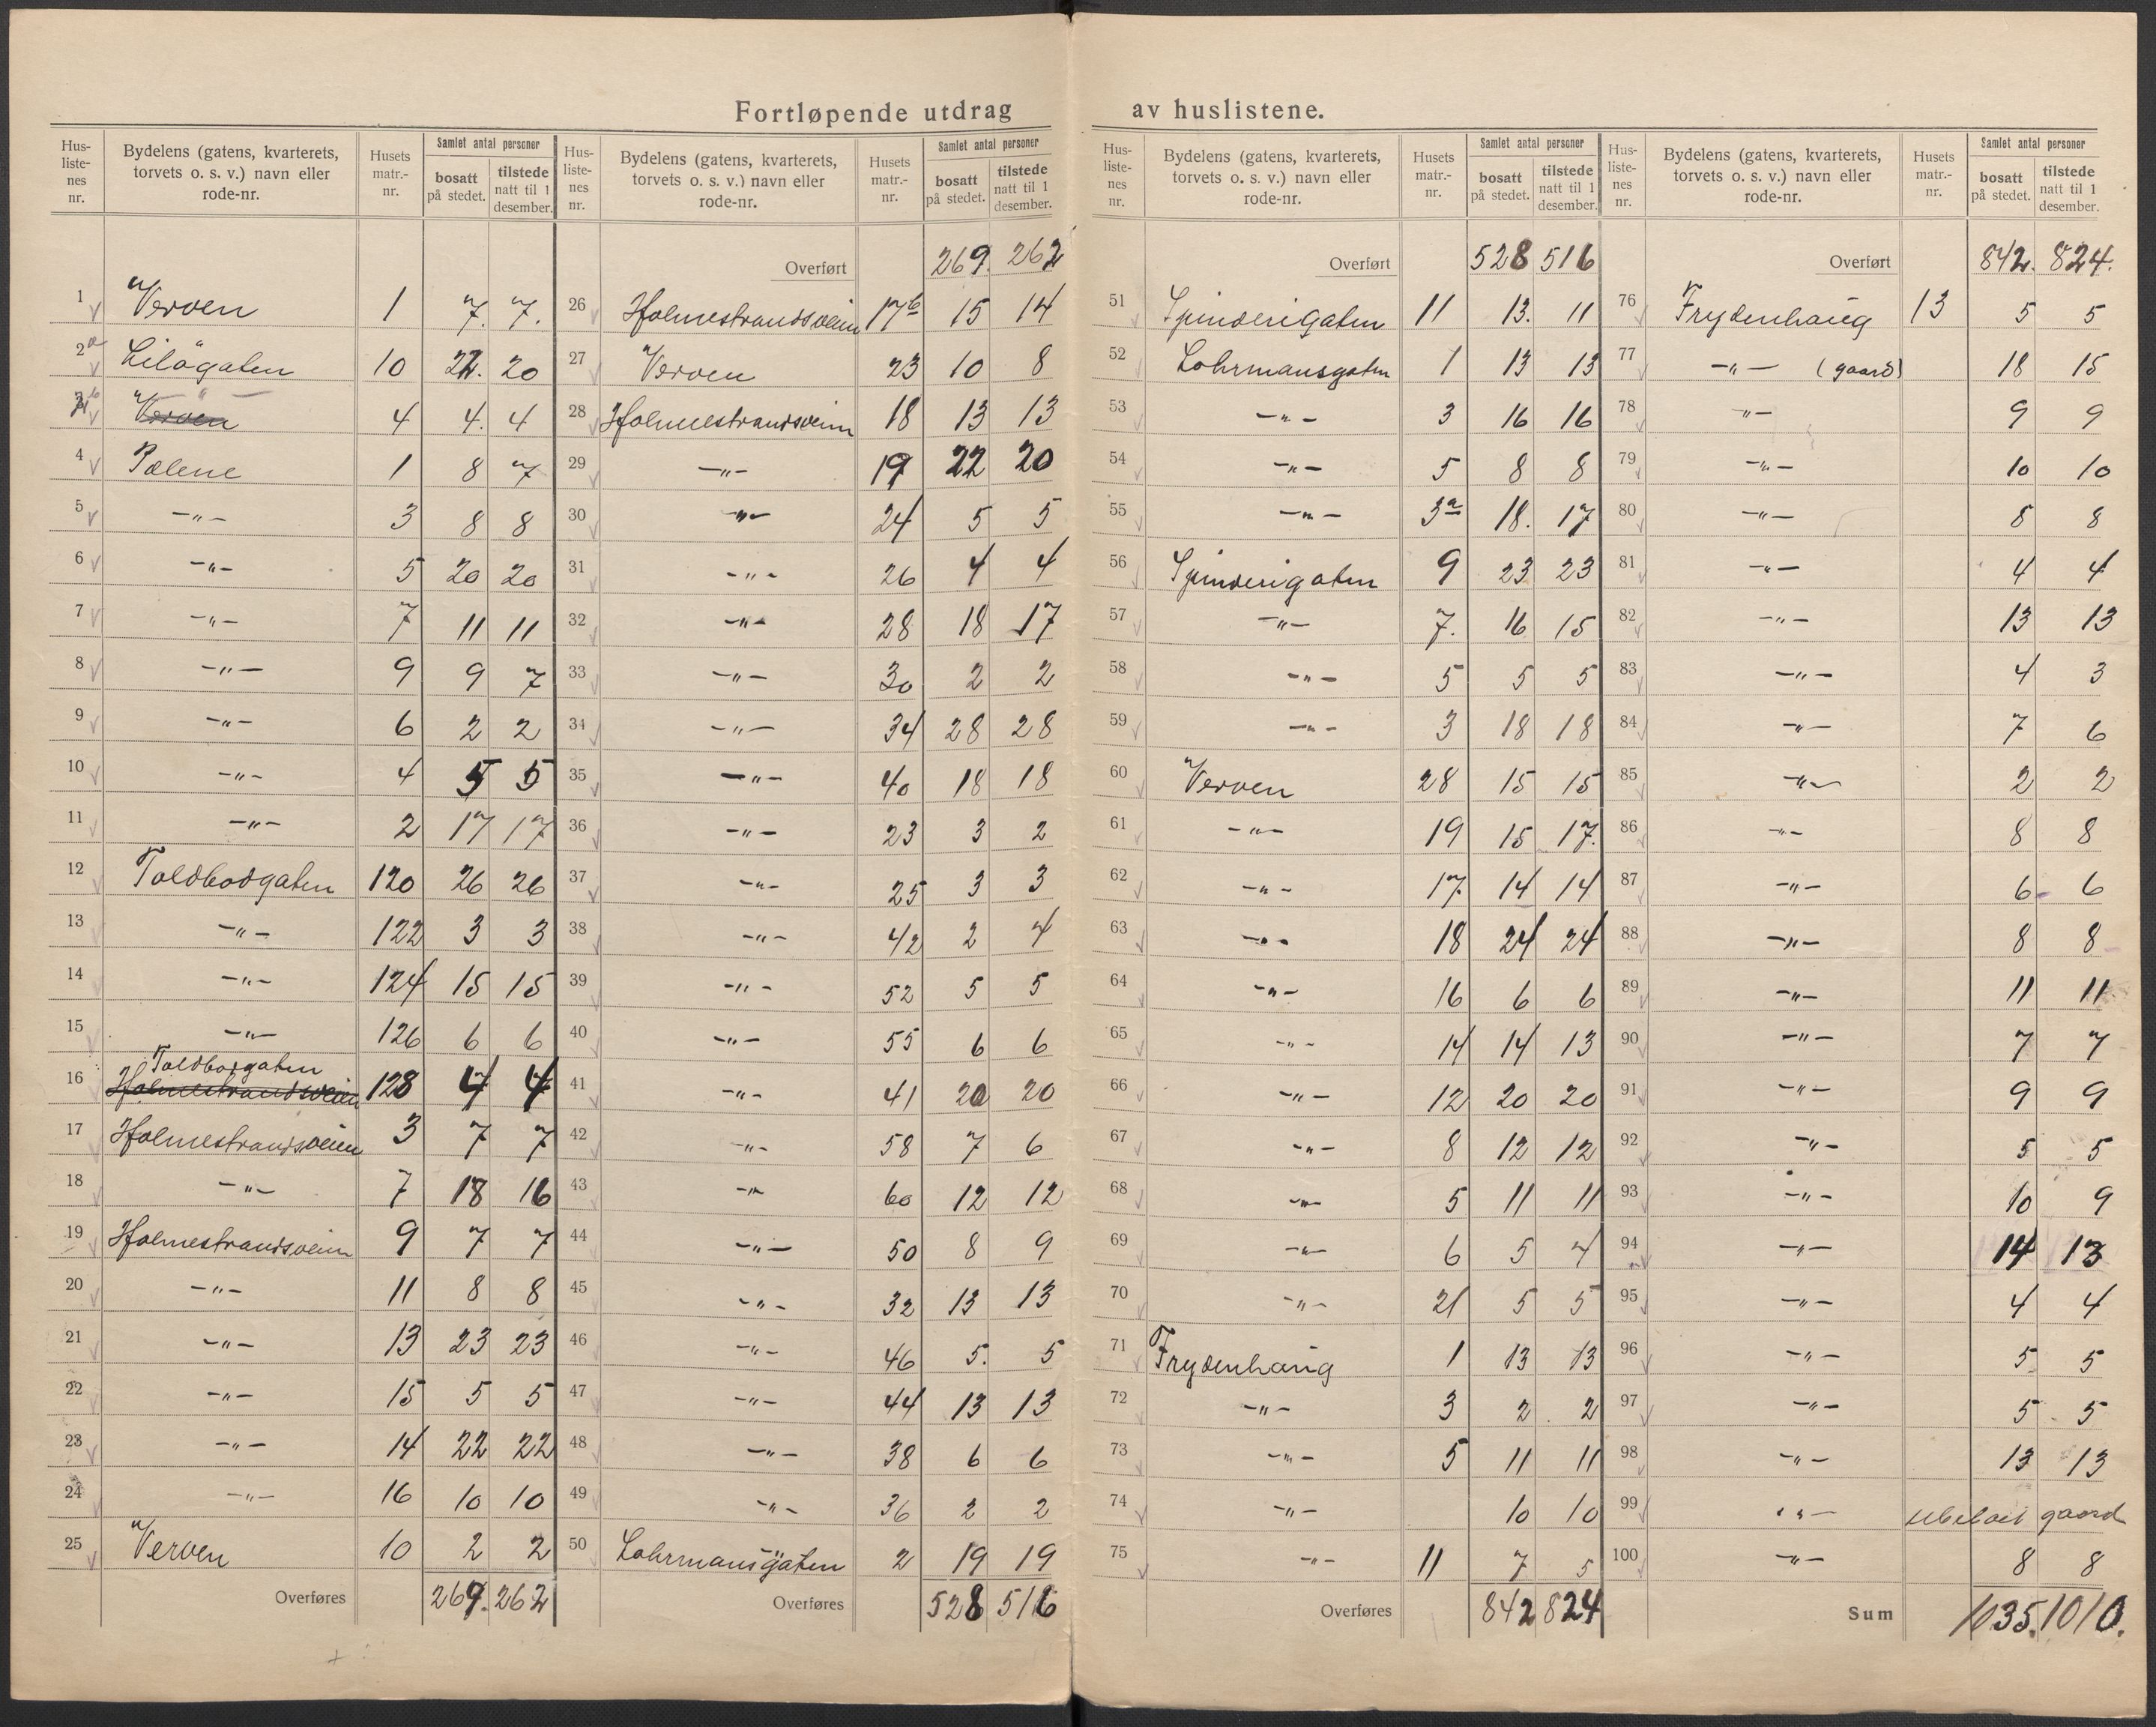 Fortløpende utdrag av huslistene.
Hus-listenes nr. Bydelens (gatens, kvarterets, torvets o. s. v.) navn eller rode-nr. Husets matr.-nr. Samlet antal personer bosatt på stedet. tilstede natt til 1 desember.
1 Verven 1 7. 7.
2a Liløgaten 10 22. 20
b Verven " 4 4. 4
4 Pælene 1 8 7
5 -"- 3 8 8
6 -"- 5 20 20
7 -"- 7 11 11
8 -"- 9 9 7
9 -"- 6 2 2
10 -"- 4 5 5
11 -"- 2 17 17
12 Toldbodgaten 120 26 26
13 -"- 122 3 3
14 -"- 124 15 15
15 -"- 126 6 6
Toldbodgaten
16 Holmestrandsveien 128 4 4
17 Holmestrandsveien 3 7 7
18 -"- 7 18 16
19 Holmestrandsveien 9 7 7
20 -"- 11 8 8
21 -"- 13 23 23
22 -"- 15 5 5
23 -"- 14 22 22
24 -"- 16 10 10
25 Verven 10 2 2
Overføres 269. 262
Hus-listenes nr. Bydelens (gatens, kvarterets, torvets o. s. v.) navn eller rode-nr. Husets matr.-nr. Samlet antal personer bosatt på stedet. tilstede natt til 1 desember.
Overført 269. 262
26 Holmestrandsveien 17b 15 14
27 Verven 23 10 8
28 Holmestrandsveien 18 13 13
29 -"- 19 22 20
30 -"- 24 5 5
31 -"- 26 4 4
32 -"- 28 18 17
33 -"- 30 2 2
34 -"- 34 28 28
35 -"- 40 18 18
36 -"- 23 3 2
37 -"- 25 3 3
38 -"- 42 2 4
39 -"- 52 5 5
40 -"- 55 6 6
41 -"- 41 20 20
42 -"- 58 7 6
43 -"- 60 12 12
44 -"- 50 8 9
45 -"- 32 13 13
46 -"- 46 5. 5
47 -"- 44 13 13
48 -"- 38 6 6
49 -"- 36 2 2
50 Lohrmansgaten 2 19 19
Overføres 528 516
Hus-listenes nr. Bydelens (gatens, kvarterets, torvets o. s. v.) navn eller rode-nr. Husets matr.-nr. Samlet antal personer bosatt på stedet. tilstede natt til 1 desember.
Overført 528 516
51 Spinderigaten 11 13. 11
52 Lohrmansgaten 1 13 13
53 -"- 3 16 16
54 -"- 5 8 8
55 -"- 3a 18. 17
56 Spinderigaten 9 23 23
57 -"- 7. 16 15
58 -"- 5 5 5
59 -"- 3 18 18
60 Verven 28 15 15
61 -"- 19 15 17.
62 -"- 17 14 14
63 -"- 18 24 24
64 -"- 16 6 6
65 -"- 14 14 13
66 -"- 12 20 20
67 -"- 8 12 12
68 -"- 5 11 11
69 -"- 6 5 4
70 -"- 21 5 5
71 Frydenhaug 1 13 13
72 -"- 3 2 2
73 -"- 5 11 11
74 -"- 10 10
75 -"- 11 7 5
Overføres 842 824
Hus-listenes nr. Bydelens (gatens, kvarterets, torvets o. s. v.) navn eller rode-nr. Husets matr.-nr. Samlet antal personer bosatt på stedet. tilstede natt til 1 desember.
Overført 842. 824.
76 Frydenhaug 13 5 5
77 -"- (gaard) 18 15
78 -"- 9 9
79 -"- 10 10
80 -"- 8 8
81 -"- 4 4
82 -"- 13 13
83 -"- 4 3
84 -"- 7 6
85 -"- 2 2
86 -"- 8 8
87 -"- 6 6
88 -"- 8 8
89 -"- 11 11
90 -"- 7 7
91 -"- 9 9
92 -"- 5 5
93 -"- 10 9
94 -"- 14 13
95 -"- 4 4
96 -"- 5 5
97 -"- 5 5
98 -"- 13 13
99 -"- gaard
100 -"- 8 8
Sum 1035. 1010.